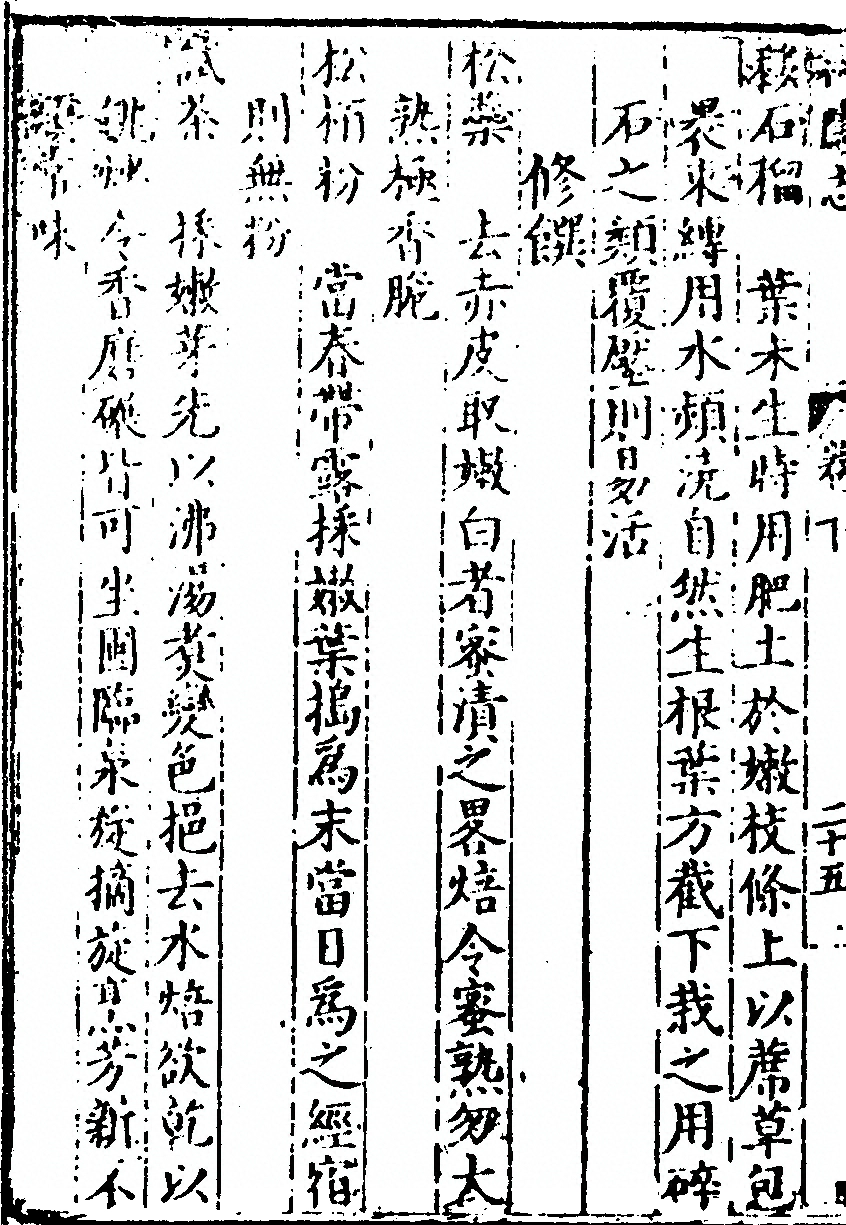 卷下 二十五
石榴 葉未生時用肥土於嫩枝條上以蓆草包
裹束縛用水頻澆自然生根葉方截下栽之用碎
石之類覆壓則易活
修饌
松蘂 去赤皮取嫩白者蜜漬之畧焙令蜜熟勿太
熟極香脆
松梢粉 當春帶露採嫩葉搗爲末當日爲之經宿
則無粉
試茶 採嫩芽先以沸湯煑變色挹去水焙欲乾以
炒令香磨碾皆可坐圃臨泉旋摘旋烹芳新不
常味